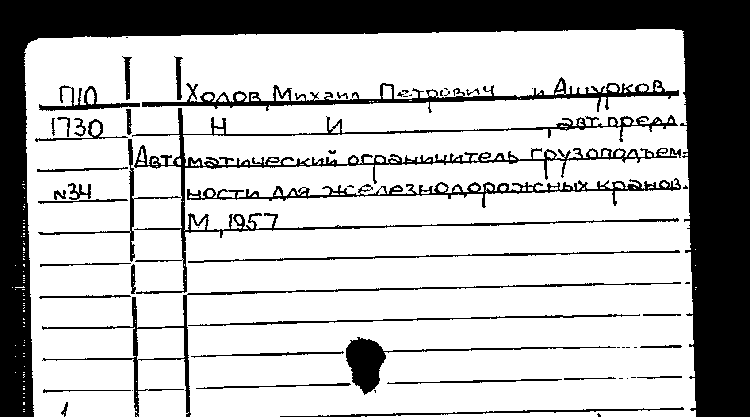 П10 Ходов, Михаил Петрович и Ашурков,
1730 Н И , авт. предл.
Автоматический ограничитель грузоподъем-
N34 ности для железнодорожных кранов.
М., 1957
1